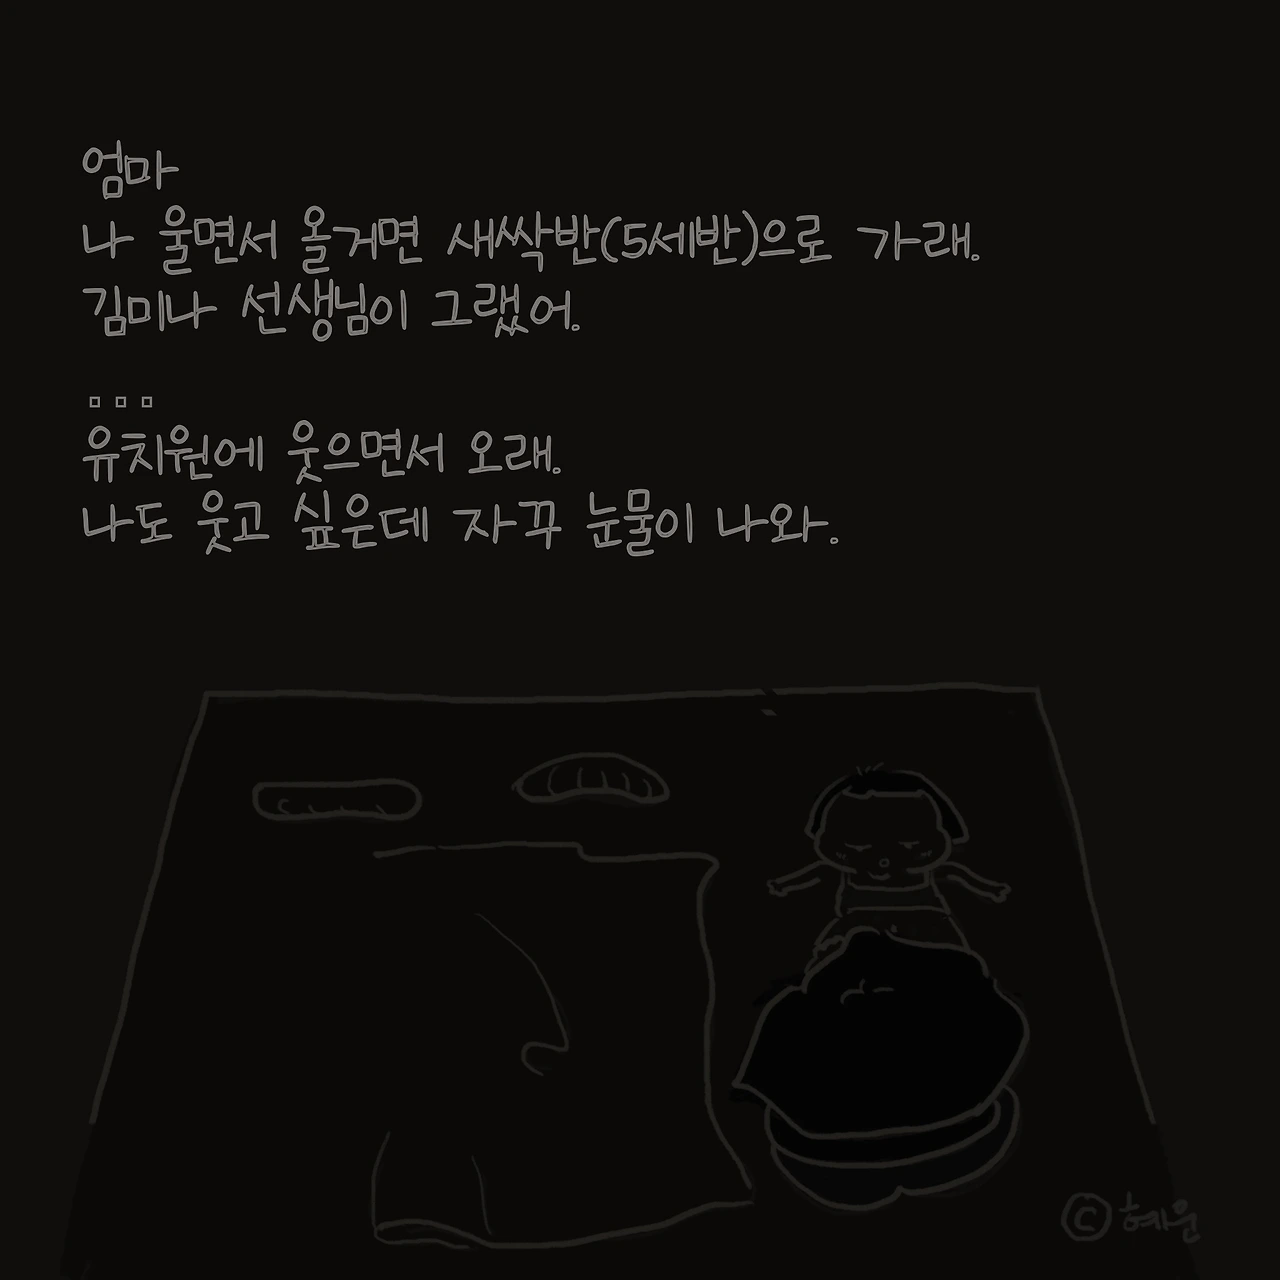 엄마
나 울면서 올거면 새싹반(5세반)으로 가래.
김미나 선생님이 그랬어.
...
유치원에 웃으면서 오래.
나도 웃고 싶은데 자꾸 눈물이 나와.
©